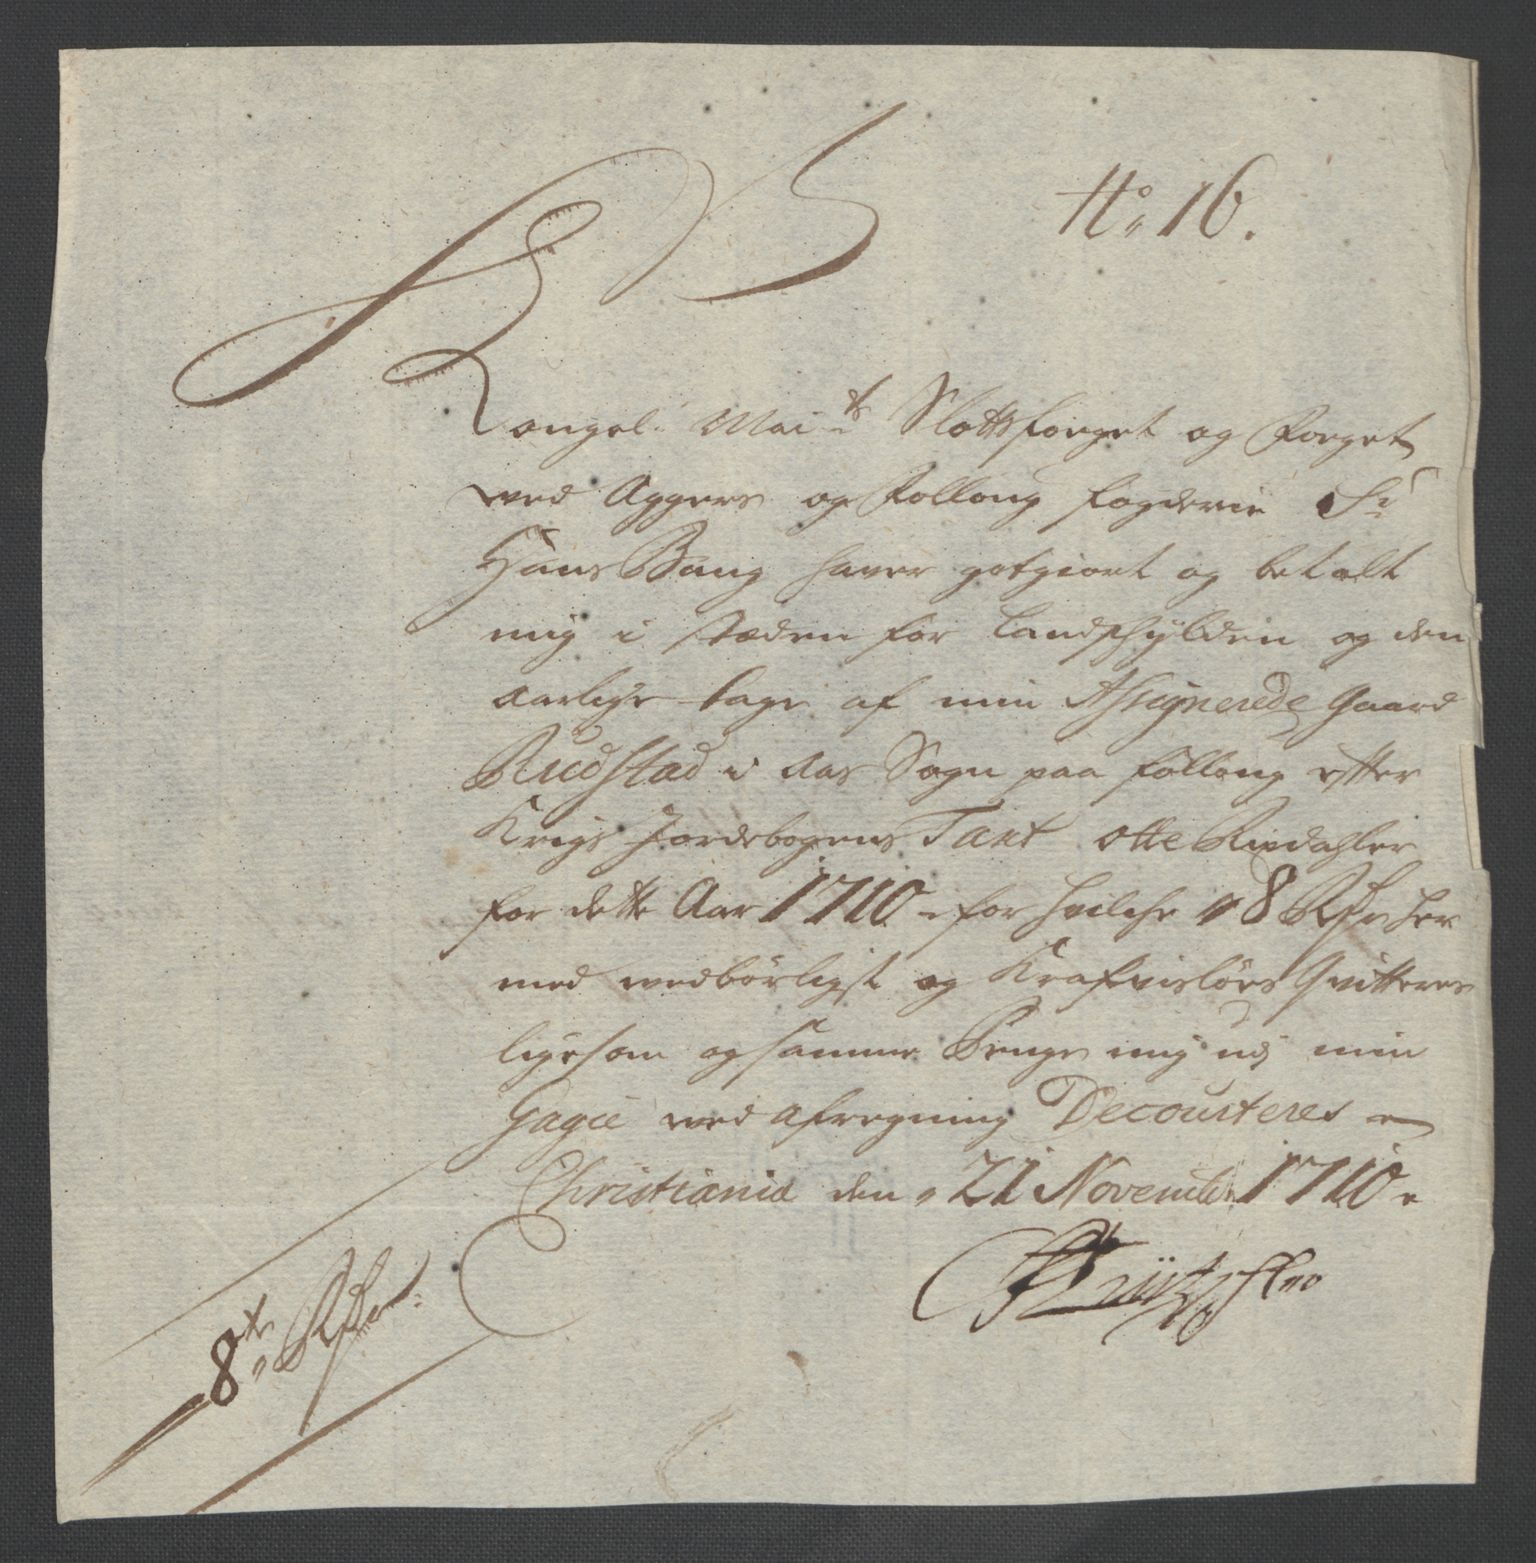 No. 16.
Kongel: Maits Slottsfoeget og Foeget
wed Aggers og Follong fogderie Sr
Hans Bang haver gotgiort og betalt
mig i stæden for landschÿlden og den
aarlige tage af min Assignerede Gaard
Rudstad i Aas Sogn paa Follong efter
Krigs Jordebogens Taxt otte Rixdahler
for dette Aar 1710 - for hvilche 8 Rdr her
med wedbørligst og Krafvisløs Qvitteres
ligesom og samme Penge mig udj min
Gagie wed afregning Decourteres
Christiania den 21 Novemb: 1710
8te Rdr: